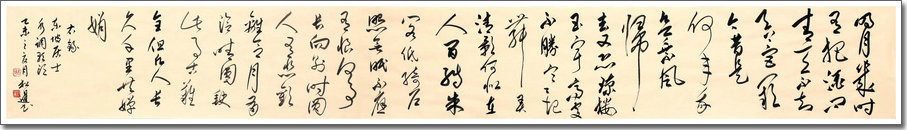 明月几时
有把酒问
青天不知
天上宫阙
今夕是
何年我
欲乘风
归
去又恐琼楼
玉宇高处
不胜寒起
舞弄
清影何似在
人间转朱
阁低绮户
照无眠不应
有恨何事
长向别时圆
人有悲欢
离合月有
阴晴圆缺
此事古难
全但愿人长
久千里共婵
娟
右录
东坡居士
水调歌头